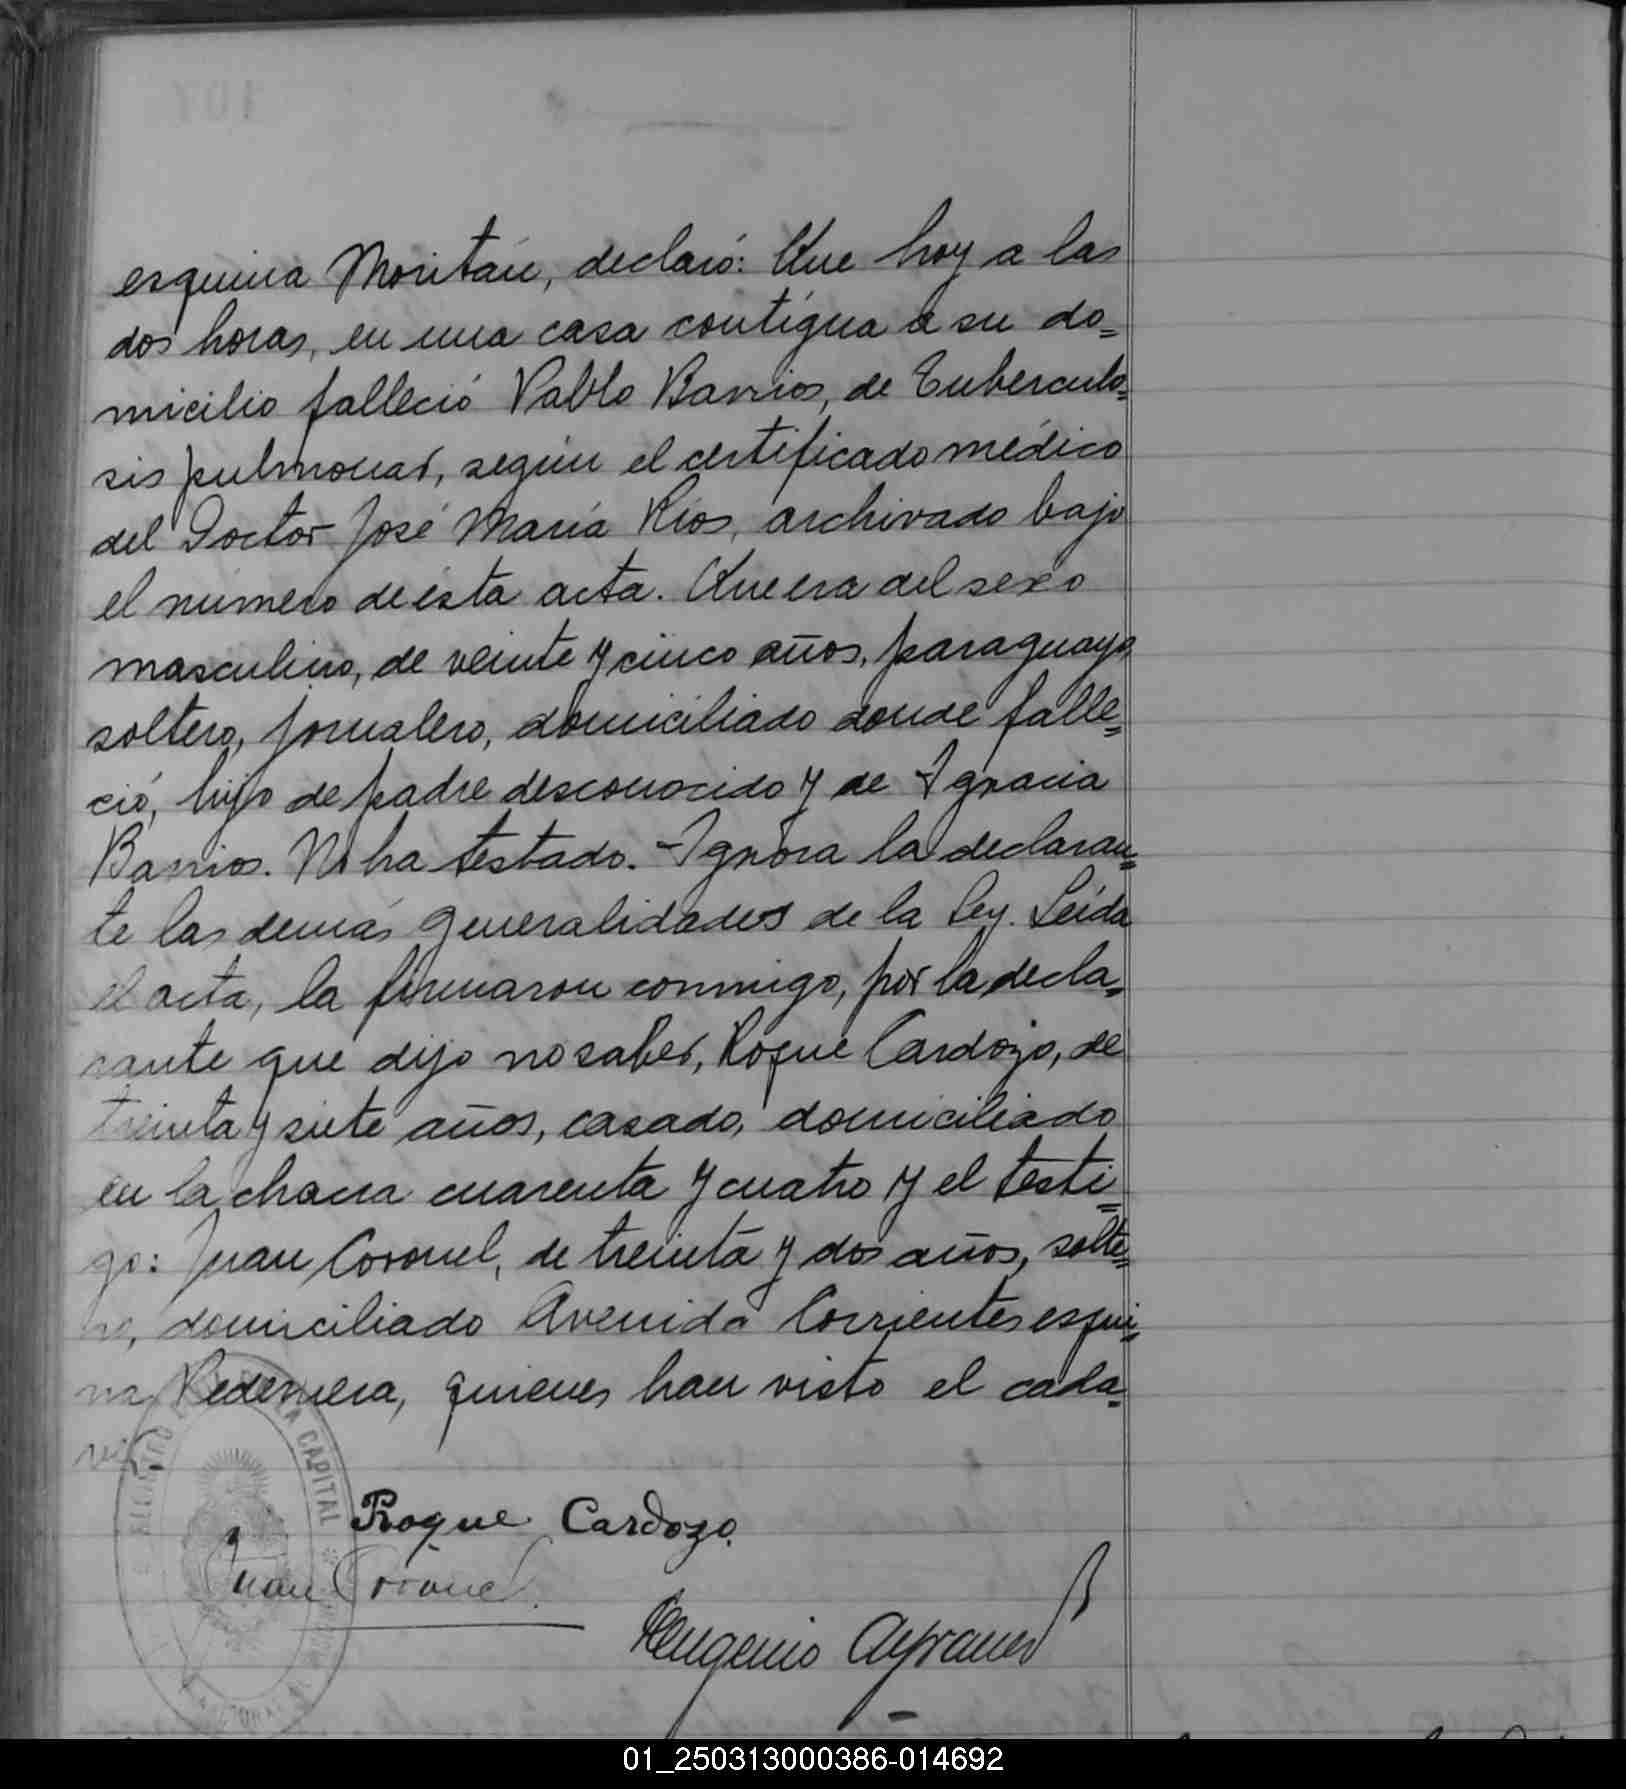 esquina Moritán, declaró: Que hoy a las
dos horas, en una casa contigua a su do=
micilio falleció Pablo Barrios, de Tuberculo=
sis pulmonar, según el certificado médico
del Doctor José María Ríos, archivado bajo
el número de ésta acta. Que era del sexo
masculino, de veinte y cinco años, paraguayo,
soltero, jornalero, domiciliado donde falle=
ció, hijo de padre desconocido y de Ignacia
Barrios. No ha testado. Ignora la declaran=
te las demás generalidades de la Ley. Leída
el acta, la firmaron conmigo, por la decla=
rante que dijo no saber, Roque Cardozo, de
treinta y siete años, casado, domiciliado
en la chacra cuarenta y cuatro y el testi=
go: Juan Coronel, de treinta y dos años, solte=
ro, domiciliado Avenida Corrientes esqui=
na Pedernera, quienes han visto el cadá=
ver.
CAPITAL
Roque Cardozo.
Juan Coronel.
Eugenio
01_250313000386-014692